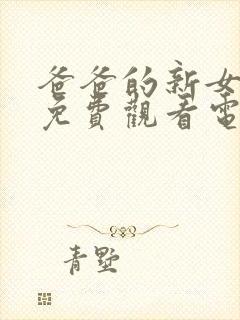 爸爸的新女
免費觀看電
青墅